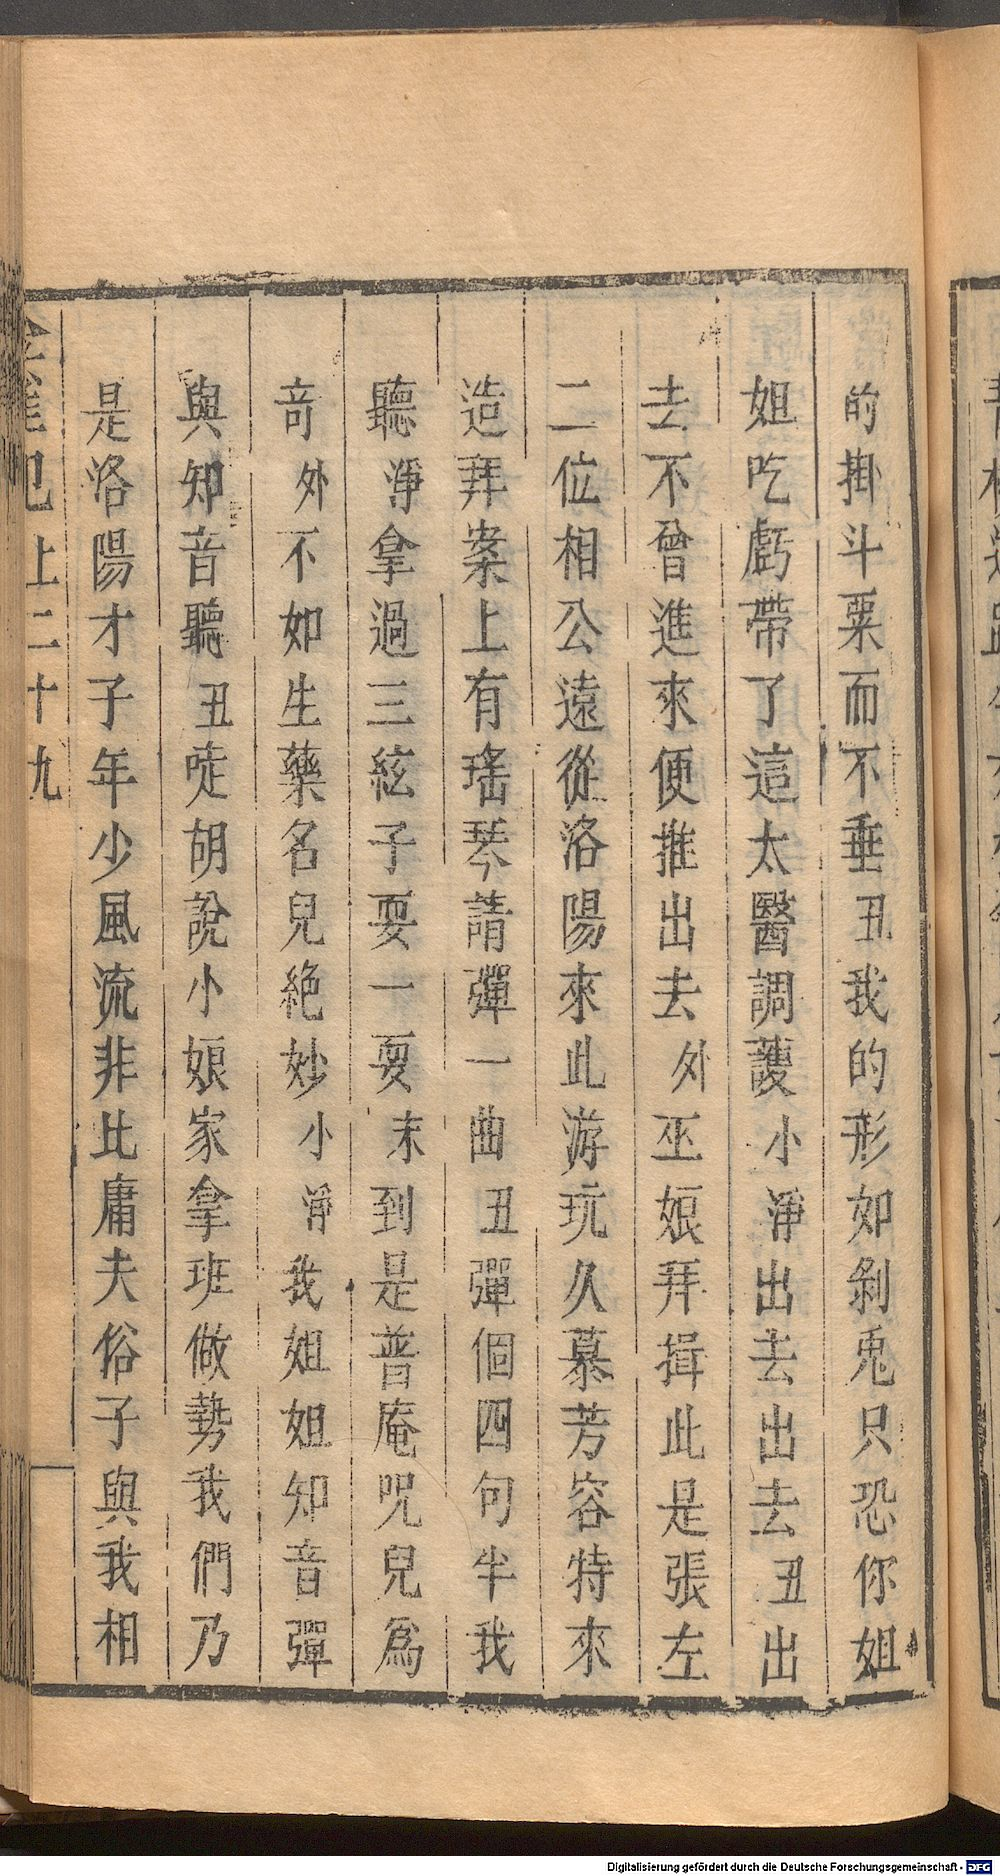 的掛斗粟而不垂丑我的形如剝兎只恐你姐
姐吃虧帶了這太醫調護小淨出去出去丑出
去不曾進來便推出去外巫娘拜揖此是張左
二位相公遠從洛陽來此游玩久慕芳容特來
造拜案上有瑤琴請彈一曲丑彈個四句半我
聽淨拿過三絃子耍一耍末到是普庵咒兒爲
奇外不如生藥名兒絶妙小淨我姐姐知音彈
與知音聽丑唗胡說小娘家拿班做勢我們乃
是洛陽才子年少風流非比庸夫俗子與我相
金雀記上二十九
Digitalisierung gefördert durch die Deutsche Forschungsgemeinschaft - DFG